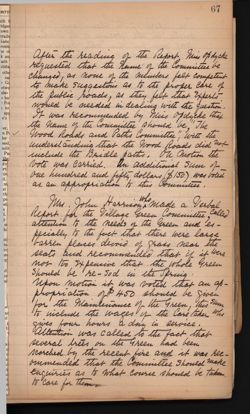 67
After the reading of the Report, Miss Opdycke
requested that the Name of the Committee be
changed, as none of the members felt competent
to make suggestions as to the proper care of
the public roads, as they felt that experts
would be needed in dealing with the question.
It was recommended by Miss Opdycke that
the Name of the Committee should be, "The
Wood Roads and Paths Committee", with the
understanding that the Wood Roads did not
include the Bridle paths. On motion the
vote was carried. An additional sum of
one hundred and fifty dollars, ($150) was voted
as an appropriation to this Committee.
Mrs. John Harrison, who made a Verbal
Report for the Village Green Committee, called
attention to the needs of the Green and es-
pecially to the fact that there were large
barren places devoid of grass near the
seats and recommended that if it were
not too expensive that the whole Green
should be re-sod in the Spring.
Upon motion it was voted that an ap-
propriation of $450 should be given
for the Maintenance of the Green, this sum
to include the wages of the Caretaker who
gives four hours a day in service.
Attention was called to the fact that
several trees on the Green had been
scorched by the recent fire and it was rec-
ommended that the Committee should make
enquiries as to what course should be taken
to care for them.